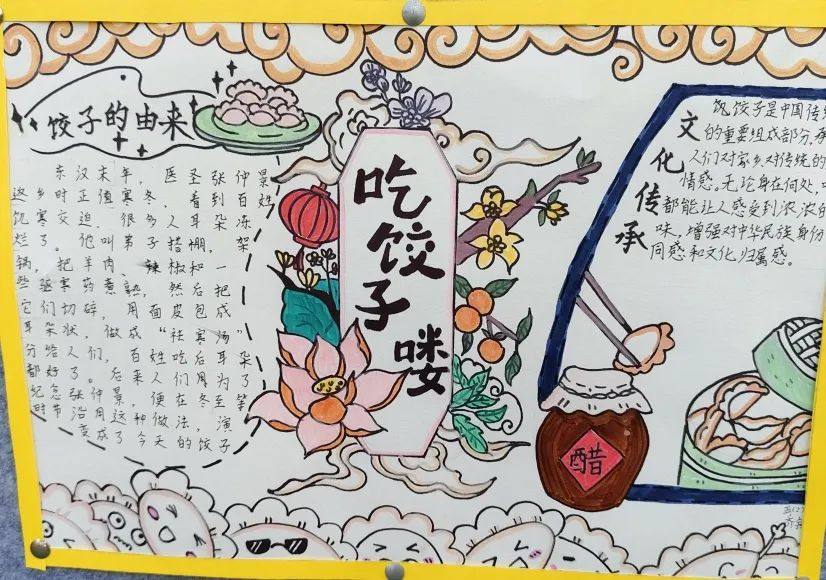 饺子的由来
东汉末年，医圣张仲景
返乡时正值寒冬，看到百姓
饥寒交迫，很多人耳朵冻
烂了。他叫弟子搭棚，架
锅，把羊肉、辣椒和一
些驱寒药煮熟，然后把
它们切碎，用面皮包成
耳朵状，做成“祛寒汤”
分给人们，百姓吃后耳朵
都好了。后来人们用为了
纪念张仲景，便在冬至等
时节沿用这种做法，演
变成了今天的饺子
吃饺子喽
文化传承
饺子是中国传
的重要组成部分，承
人们对家乡对传统的
情感。无论身在何处，
都能让人感受到浓浓的
味，增强对中华民族身份
同感和文化归属感。
醋